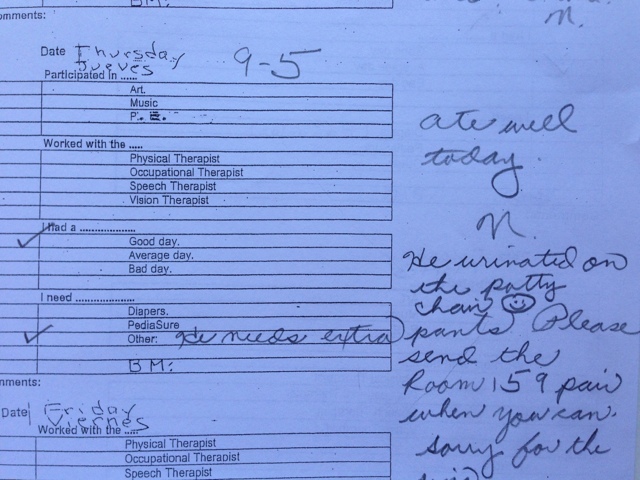 BM:
omments:
n.
Date Thursday 9-5
Jueves
Participated in ......
Art.
Music
P. E.
ate well
today.
Worked with the .....
Physical Therapist
Occupational Therapist
Speech Therapist
Vision Therapist
n.
I had a ...................
Good day.
Average day.
Bad day.
He urinated on
the potty
chair
I need ....................
Diapers.
PediaSure
Other: He needs extra pants Please
send the
Room 159 pair
when you can.
sorry for the
BM:
mments:
Date Friday
Viernes
Worked with the .....
Physical Therapist
Occupational Therapist
Speech Therapist